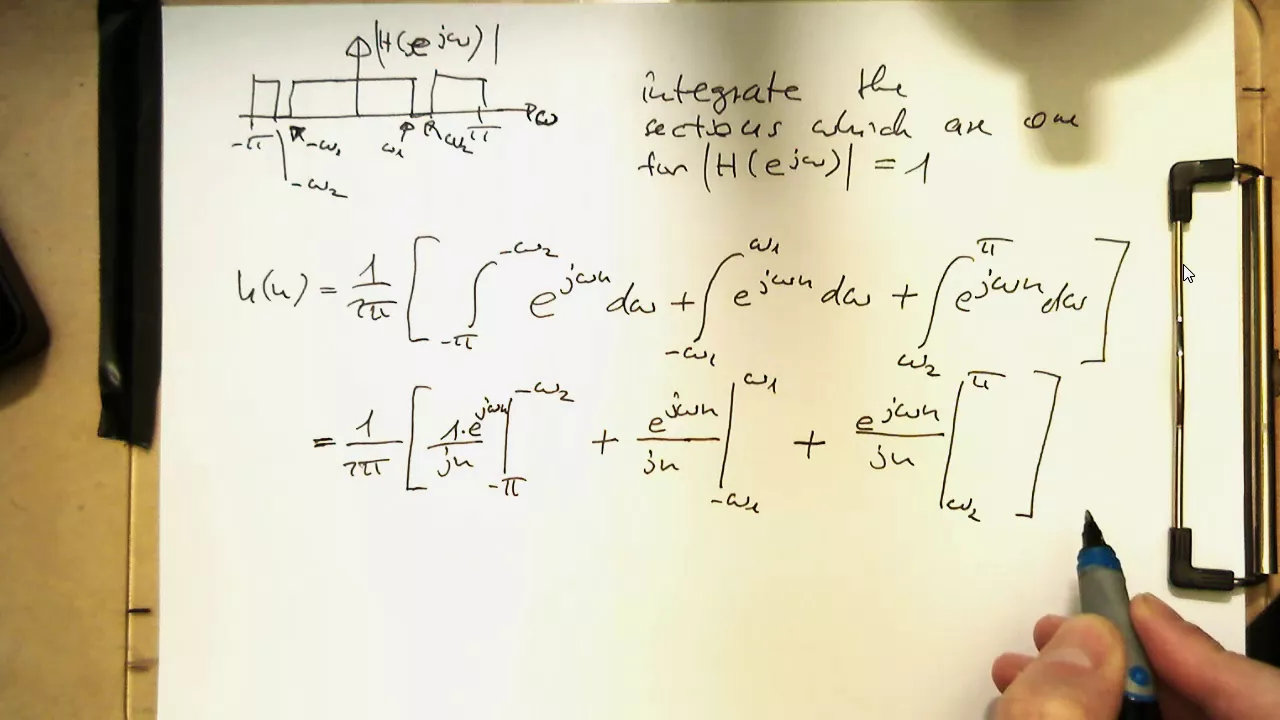 |H(e^{jω})|
integrate the
sections which are one
for |H(e^{jω})| = 1
-π -ω₁ ω₁ ω₂ π ω
-ω₂
h(n) = 1/2π [ ∫_{-π}^{-ω₂} e^{jωn} dω + ∫_{-ω₁}^{ω₁} e^{jωn} dω + ∫_{ω₂}^{π} e^{jωn} dω ]
= 1/2π [ 1·e^{jωn}/jn |_{-π}^{-ω₂} + e^{jωn}/jn |_{-ω₁}^{ω₁} + e^{jωn}/jn |_{ω₂}^{π} ]